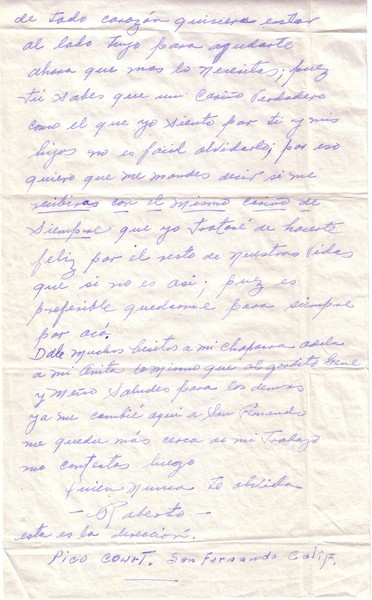 de todo corazón quisiera estar
al lado tuyo para ayudarte
ahora que mas lo necesitas; puez
tú sabes que un cariño verdadero
como el que yo siento por ti y mis
hijos no es facil olvidarlo; por eso
quiero que me mandes decir si me
recibiras con el mismo cariño de
siempre que yo trataré de hacerte
feliz por el resto de nuestras vidas
que si no es asi; puez es
preferible quedarme para siempre
por acá.
Dale muchos besitos a mi chaparra
a mi Anita lo mismo que al gordito
y Meño Saludes para los demas
ya me cambié aqui a San Fernando
me queda más cerca de mi Trabajo
me contestas luego
Quien Nunca te olvida
- Roberto -
esta es la dirección.
Pico Court. San Fernando Calif.